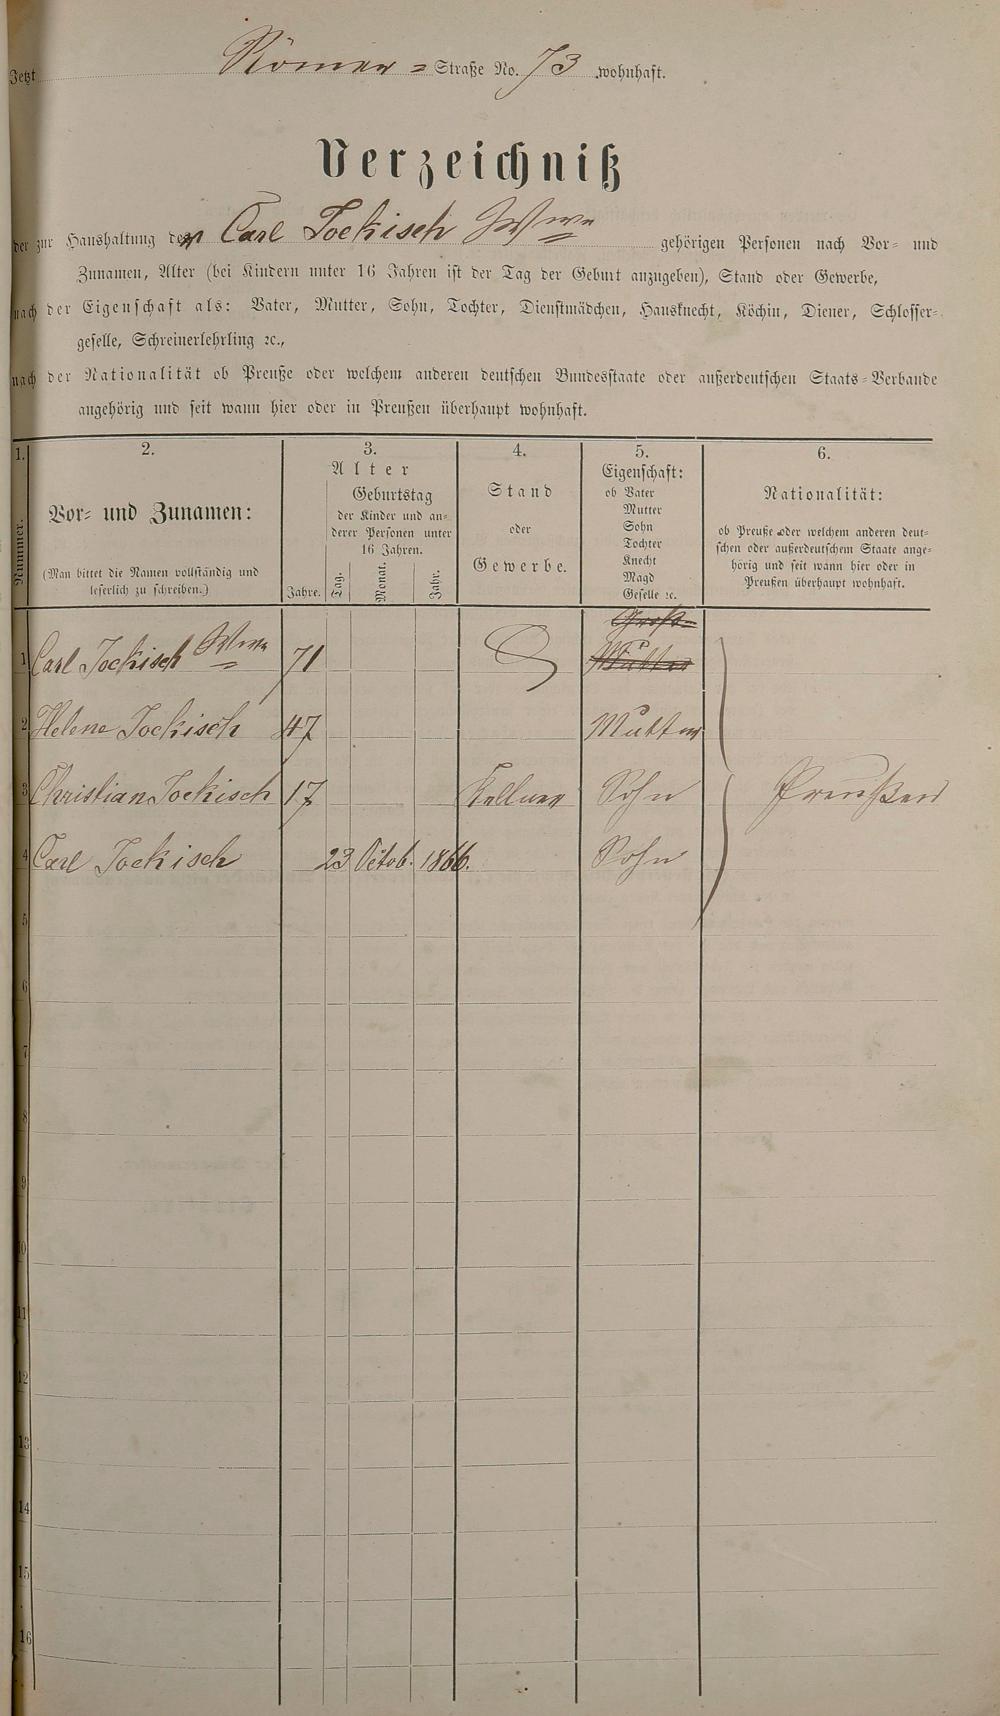 Jetzt Römer = Straße No. 73 wohnhaft.
Verzeichniß
der zur Haushaltung der Carl Jockisch Wwe gehörigen Personen nach Vor- und
Zunamen, Alter (bei Kindern unter 16 Jahren ist der Tag der Geburt anzugeben), Stand oder Gewerbe,
nach der Eigenschaft als: Vater, Mutter, Sohn, Tochter, Dienstmädchen, Hausknecht, Köchin, Diener, Schlosser-
geselle, Schreinerlehrling ꝛc.,
nach der Nationalität ob Preuße oder welchem anderen deutschen Bundesstaate oder außerdeutschen Staats-Verbande
angehörig und seit wann hier oder in Preußen überhaupt wohnhaft.
1.
Nummer.
2.
Vor- und Zunamen:
(Man bittet die Namen vollständig und
leserlich zu schreiben.)
3.
Alter
Jahre.
Geburtstag
der Kinder und an-
derer Personen unter
16 Jahren.
Tag.
Monat.
Jahr.
4.
Stand
oder
Gewerbe.
5.
Eigenschaft:
ob Vater
Mutter
Sohn
Tochter
Knecht
Magd
Geselle ꝛc.
6.
Nationalität:
ob Preuße oder welchem anderen deut-
schen oder außerdeutschem Staate ange-
hörig und seit wann hier oder in
Preußen überhaupt wohnhaft.
Groß-
1 Carl Jockisch Wwe 71 Mutter
2 Helene Jockisch 47 Mutter
3 Christian Jockisch 17 Kellner Sohn Preußen
4 Carl Jockisch 23 Octob. 1866. Sohn
5
6
7
8
9
10
11
12
13
14
15
16